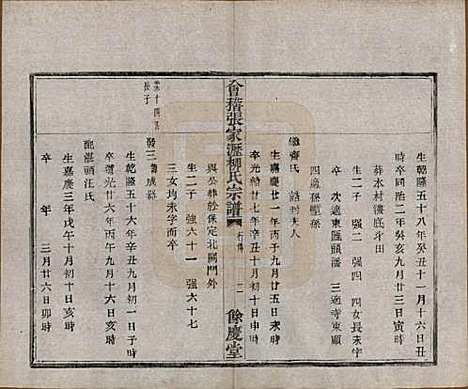 生乾隆五十八年癸丑十一月十六日丑時
卒同治二年癸亥九月廿三日寅時
葬水村樓底斗田
生二子 强二 强四 四女長未字
次適東匯頭潘 三適寺東顧
四歲孫
繼齊氏 誥封夫人
生嘉慶廿一年丙子九月廿五日未時
卒光緒廿七年辛丑十月初十日申時
與公葬於保定北關門外
生二子强六十一 强六十七
三女均未字卒
會稽張家瀝柳氏宗譜
餘慶堂
長子
發三 成路
生乾隆五十六年辛丑九月初一日子時
卒道光廿六年丙午九月十六日亥時
配湛頭汪氏
生嘉慶三年戊午十月初十日亥時
卒 年 三月廿六日卯時